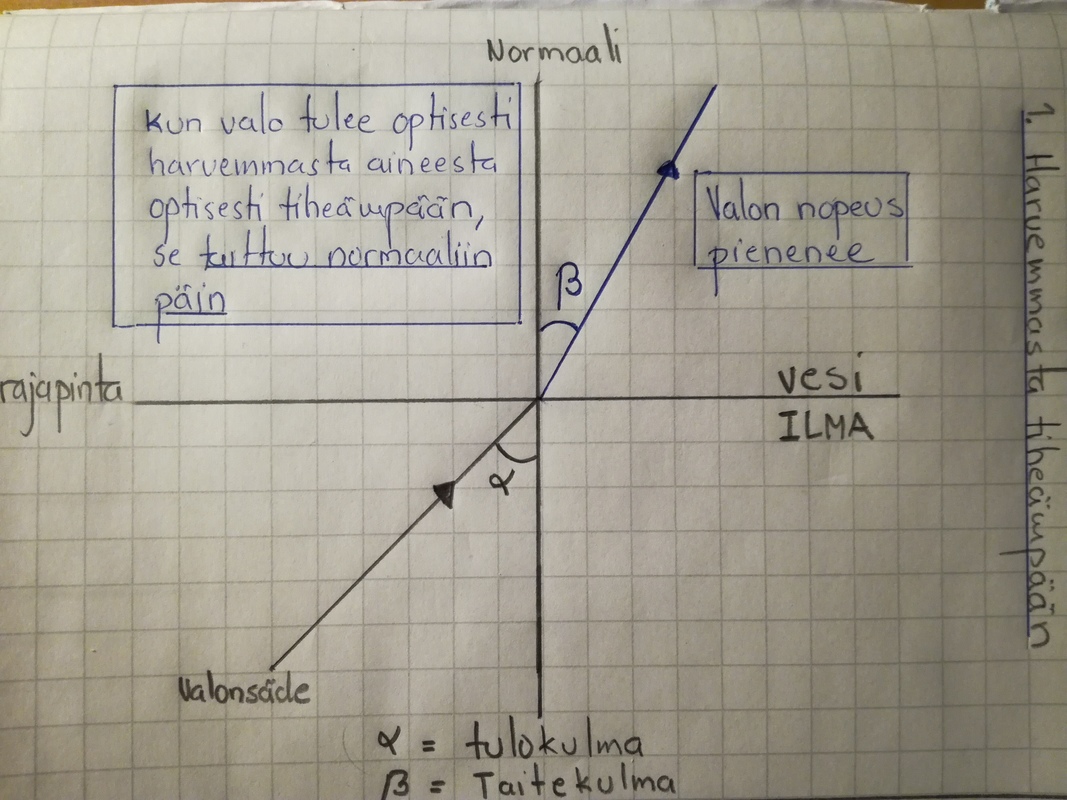 Normaali
Kun valo tulee optisesti
harvemmasta aineesta
optisesti tiheämpään,
se taittuu normaaliin
päin
Valon nopeus
pienenee
β
rajapinta
vesi
ILMA
α
Valonsäde
α = tulokulma
β = Taitekulma
1. Harvemmasta tiheämpään